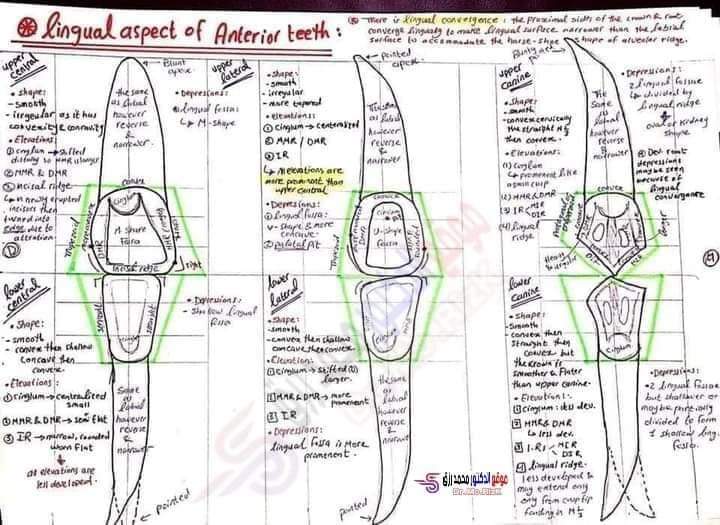 lingual aspect of Anterior teeth:
there is lingual convergence: the proximal sides of the crown & root
converge lingually to make lingual surface narrower than the labial
surface to accomodate the horse-shoe shape of alveolar ridge.
upper central
• shape:
- smooth
- irregular as it has
convexity & concavity
• Elevations:
① cinglum → shifted
distally so MMR is longer
② MMR & DMR
③ incisal ridge
↳ in newly erupted
incisors then
turned into
edge due to
attrition
Blunt
apex
• Depressions:
lingual fossa:
↳ M-shape
the same
as labial
however
reverse
&
narrower
convex
Cinglum
M-shape
Fossa
DMR
incisal ridge
Trapezoid
right
upper lateral
• Shape:
- smooth
- irregular
- more tapered
• Elevations:
① Cinglum → centeralized
② MMR / DMR
③ IR
↳ All elevations are
more prominent than
upper central
• Depressions:
① lingual fossa:
V-shape & more
concave.
② palatal pit
pointed
apex
The same
as labial
however
reverse
&
narrower
convex
Trapezoid
DMR
fossa
upper canine
• Shape:
- smooth
- convex cervically
then straight M⅓
then convex.
• Elevations:
(1) Cinglum
↳ prominent like
a small cup
(2) MMR & DMR
(3) IR MIR
DIR
(4) lingual
ridge
• Depressions:
2 lingual fossae
↳ divided by
lingual ridge
oval or Kidney
shape
Dev. root
depressions
may be seen
because of
lingual
convergence
The
Same
as labial
however
reverse
&
narrower
convex
lower central
• Shape:
- smooth
- convex then shallow
concave then
convex.
• Elevations:
① cinglum → centeralized
small
② MMR & DMR → semi flat
③ IR → narrow, rounded
worn Flat
all elevations are
less developed.
• Depressions:
- Shallow lingual
fossa
smooth
Cinglum
Same
as
labial
however
reverse
&
narrower
pointed
lower lateral
• Shape:
- smooth
- convex then shallow
concave then convex.
• Elevations:
① cinglum → shifted (D)
larger.
② MMR & DMR → more
prominent
③ IR
• Depressions:
lingual fossa is More
prominent.
Cinglum
the same
as
labial
however
reverse
&
narrower
pointed
lower canine
• Shape:
- Smooth
- convex then
Straight then
convex but
the crown is
Smoother & Flater
than upper canine.
• Elevation:
① cinglum: less dev.
② MMR & DMR
↳ less dev.
③ I.R: MIR
DIR
④ lingual ridge.
less developed &
may extend only
only from cusp tip
fading in M⅓
Cinglum
• Depressions:
2 lingual Fossae
but shallower or
may be partially
divided to form
1 shallow ling.
fossa.
موقع الدكتور محمد رزق